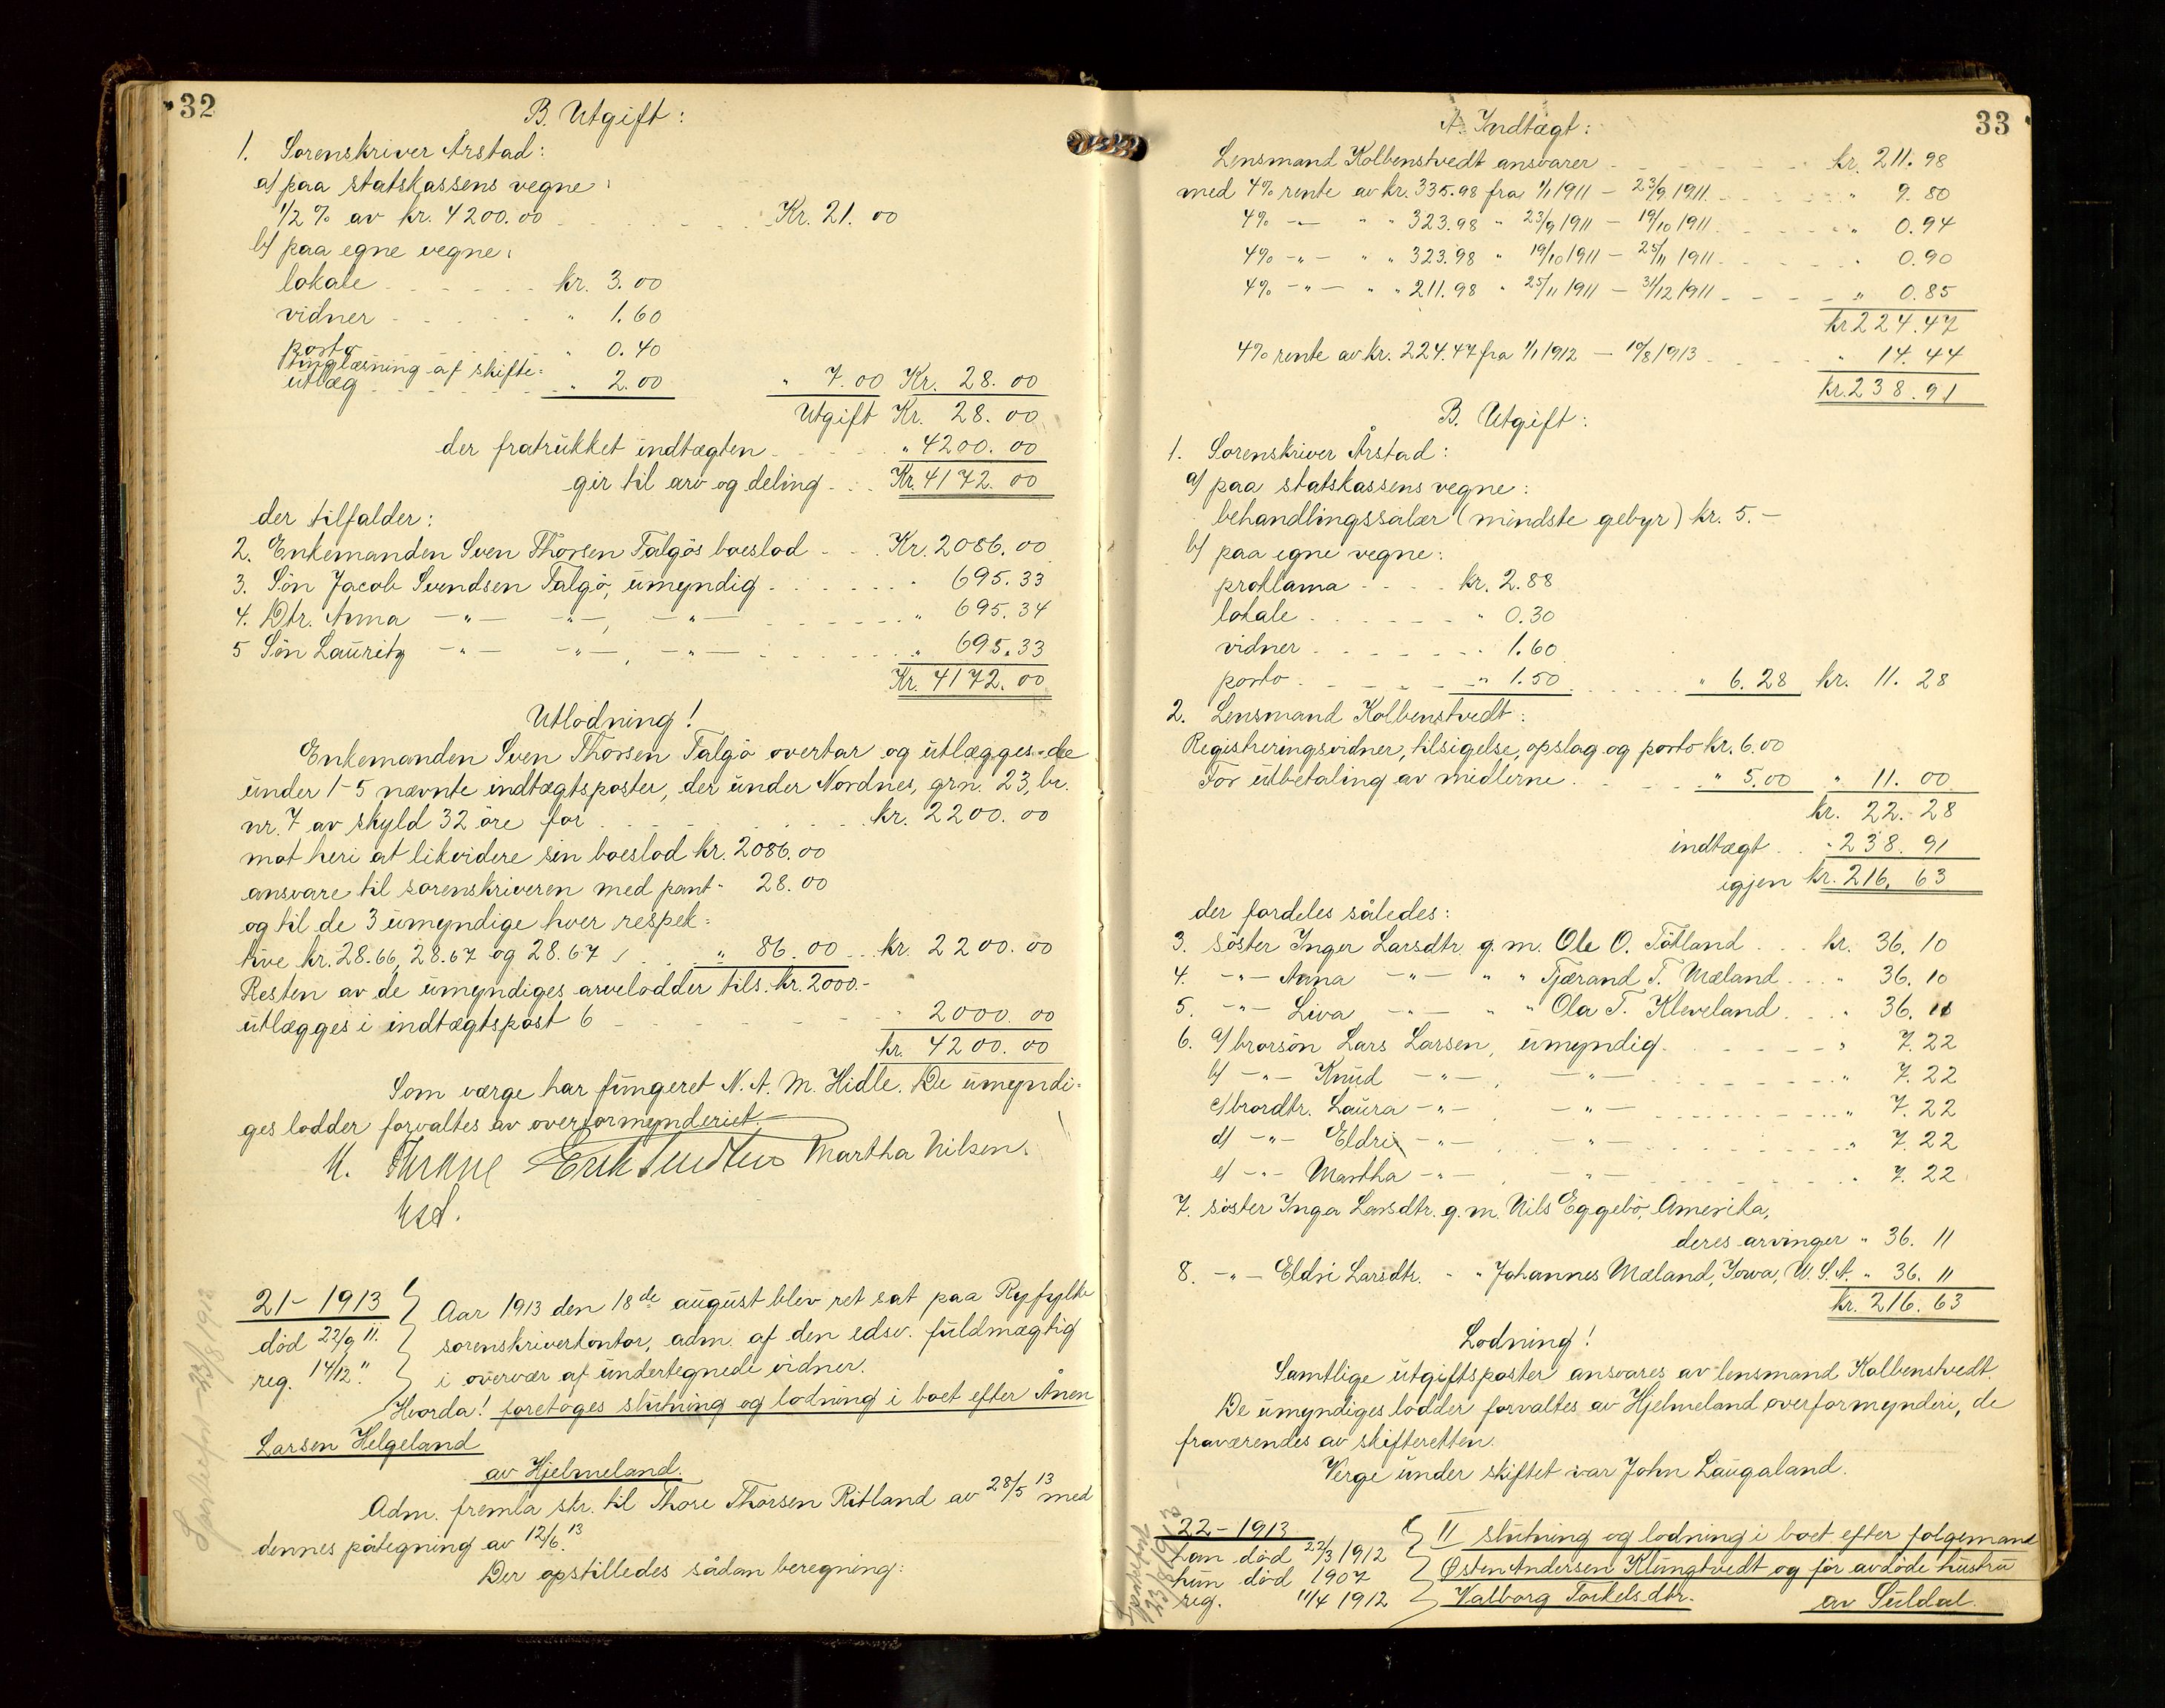 32
B. Utgift:
1. Sorenskriver Årstad:
a) paa statskassens vegne:
1/2 % av kr. 4200.00 Kr. 21.00
b) paa egne vegne:
lokale kr. 3.00
vidner " 1.60
porto " 0.40
tinglæsning af skifte=
utlæg " 2.00 " 7.00 Kr. 28.00
Utgift Kr. 28.00
der fratrukket indtægten " 4200.00
gir til arv og deling Kr. 4172.00
der tilfalder:
2. Enkemanden Sven Thorsen Talgös boeslod Kr. 2086.00
3. Sön Jacob Svendsen Talgö, umyndig " 695.33
4. Dtr. Anna -"- -"-, -"- " 695.34
5 Sön Lauritz -"- -"-, -"- " 695.33
Kr. 4172.00
Utlodning!
Enkemanden Sven Thorsen Talgö overtar og utlægges de
under 1-5 nævnte indtægtsposter, der under Nordnes, grn. 23, br.
nr. 7 av skyld 32 öre for kr. 2200.00
mot heri at likvidere sin boeslod kr. 2086.00
ansvare til sorenskriveren med pant " 28.00
og til de 3 umyndige hver respek=
tive kr. 28.66, 28.67 og 28.67 " 86.00 kr. 2200.00
Resten av de umyndiges arvelodder tils. kr. 2000.-
utlægges i indtægtspost 6 " 2000.00
kr. 4200.00
Som værge har fungeret N. A. M. Hidle. De umyndi=
ges lodder forvaltes av overformynderiet.
Martha Nilsen.
21 - 1913
död 22/9 11.
reg. 14/12 "
Aar 1913 den 18de august blev ret sat paa Ryfylke
sorenskriverkontor, adm. af den edsv. fuldmægtig
i overvær af undertegnede vidner.
Hvorda! foretoges slutning og lodning i boet efter Ånen
Larsen Helgeland
av Hjelmeland.
Adm. fremla skr. til Thore Thorsen Ritland av 28/5 13 med
dennes påtegning av 12/6 13.
Der opstilledes sådan beregning:
23/8 1913
33
A. Indtægt:
Lensmand Kolbenstvedt ansvarer kr. 211.98
med 4% rente av kr. 335.98 fra 1/1 1911 - 23/9 1911 " 9.80
4% -"- " " 323.98 " 23/9 1911 - 19/10 1911 " 0.94
4% -"- " " 323.98 " 19/10 1911 - 25/11 1911 " 0.90
4% -"- " " 211.98 " 25/11 1911 - 31/12 1911 " 0.85
kr. 224.47
4% rente av kr. 224.47 fra 1/1 1912 - 10/8 1913 " 14.44
kr. 238.91
B. Utgift:
1. Sorenskriver Årstad:
a) paa statskassens vegne:
behandlingssalær (mindste gebyr) kr. 5.-
b) paa egne vegne:
proklama kr. 2.88
lokale " 0.30
vidner " 1.60
porto " 1.50 " 6.28 kr. 11.28
2. Lensmand Kolbenstvedt:
Registreringsvidner, tilsigelse, opslag og porto kr. 6.00
For utbetaling av midlerne " 5.00 " 11.00
kr. 22.28
indtægt " 238.91
igjen kr. 216.63
der fordeles således:
3. söster Inger Larsdtr. g. m. Ole O. Tötland kr. 36.10
4. -"- Anna -"- " " Tjærand T. Mæland " 36.10
5. -"- Liva -"- " " Ola T. Kleveland " 36.11
6. a) brorsön Lars Larsen, umyndig " 7.22
b) -"- Knud -"-, -"- " 7.22
c) brordtr. Laura -"-, -"- " 7.22
d) -"- Eldri -"-, -"- " 7.22
e) -"- Martha -"-, -"- " 7.22
7. söster Inga Larsdtr. g. m. Nils Eggebö, Amerika,
deres arvinger " 36.11
8. -"- Eldri Larsdtr. " " Johannes Mæland, Iowa, U. S. A. " 36.11
kr. 216.63
Lodning!
Samtlige utgiftsposter ansvares av lensmand Kolbenstvedt.
De umyndiges lodder forvaltes av Hjelmeland overformynderi, de
fraværendes av skifteretten.
Verge under skiftet var John Laugaland.
22 - 1913
han död 22/3 1912
hun död 1907
reg. 11/4 1912
II slutning og lodning i boet efter folgemand
Østen Andersen Klungtvedt og før avdöde hustru
Valborg Torkelsdtr. av Suldal.
23/8 1913